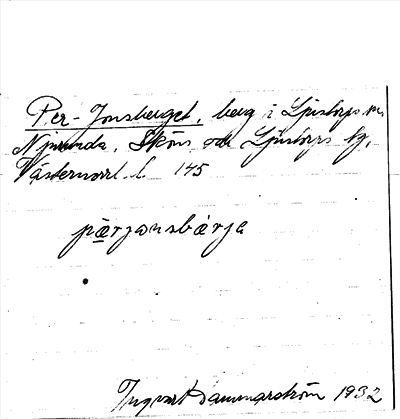 Per-Jonsberget, berg i Ljustorps sn,
Njurunda, Sköns och Ljustorps tg,
Västernorrl. l. 145
pærjonsbærja
Ingvar Hammarström 1932